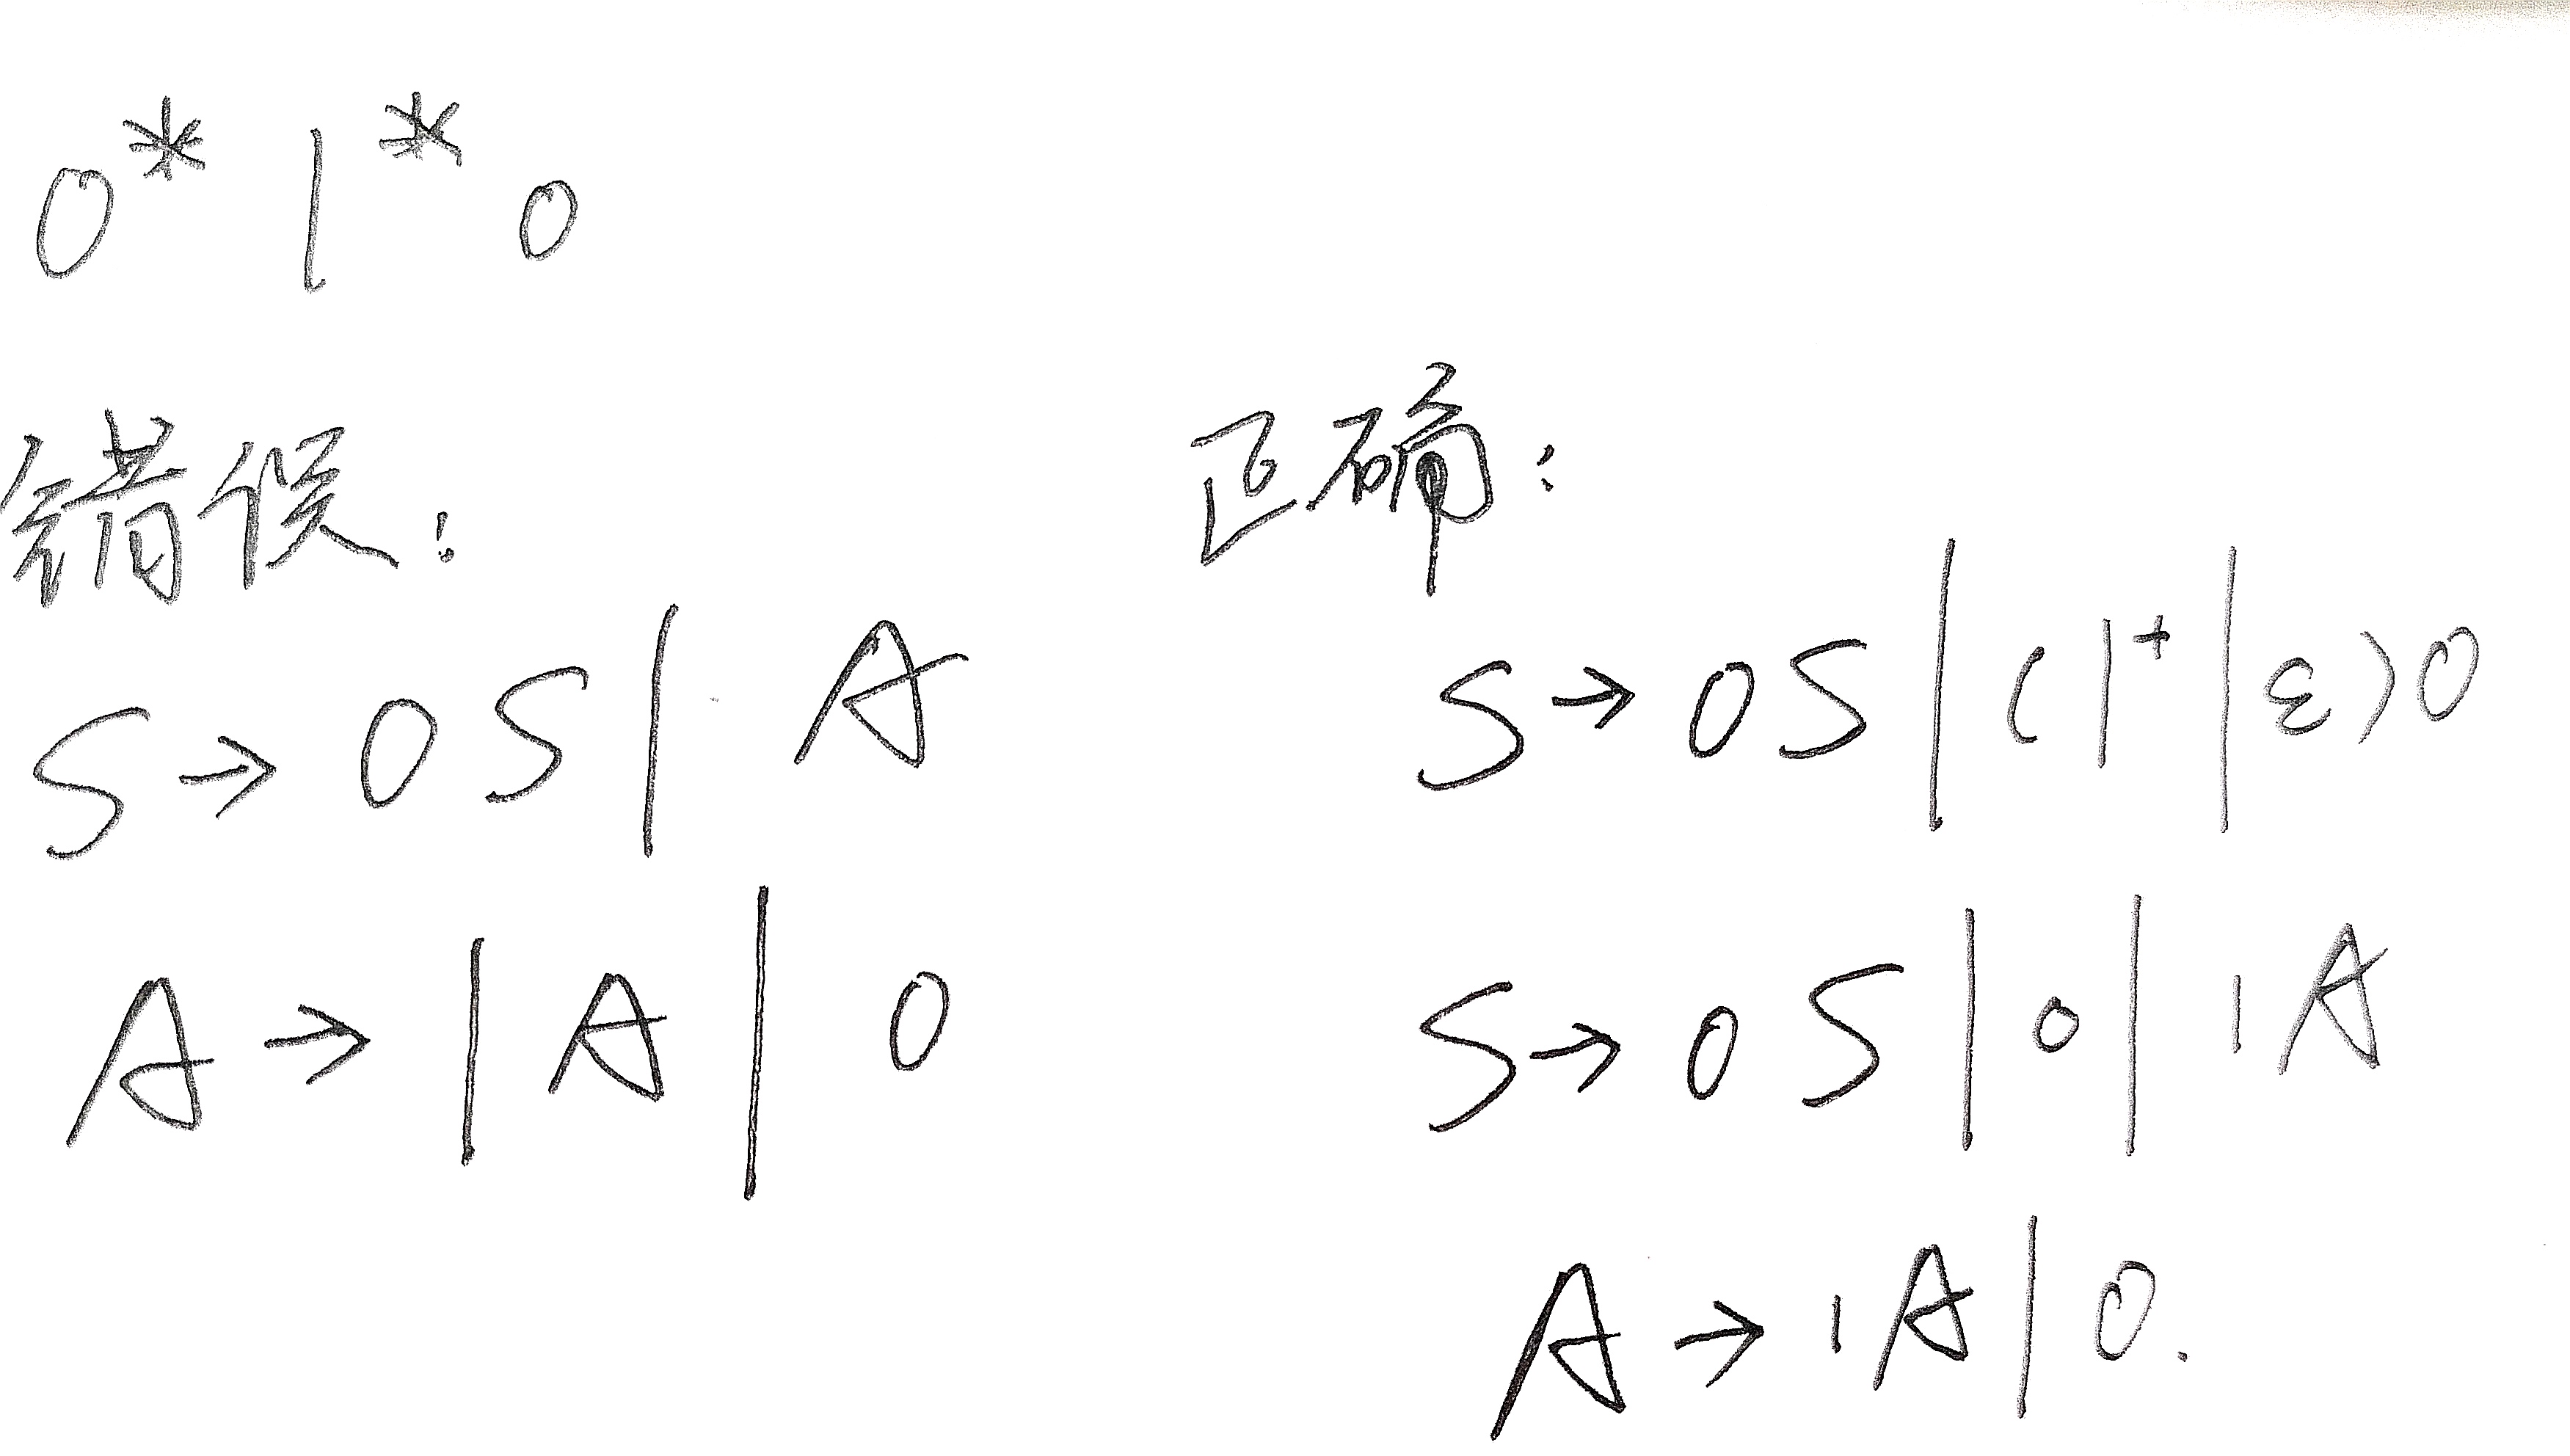 0* 1* 0
错误:
S → 0S | A
A → 1A | 0
正确:
S → 0S | (1⁺ | ε)0
S → 0S | 0 | 1A
A → 1A | 0.